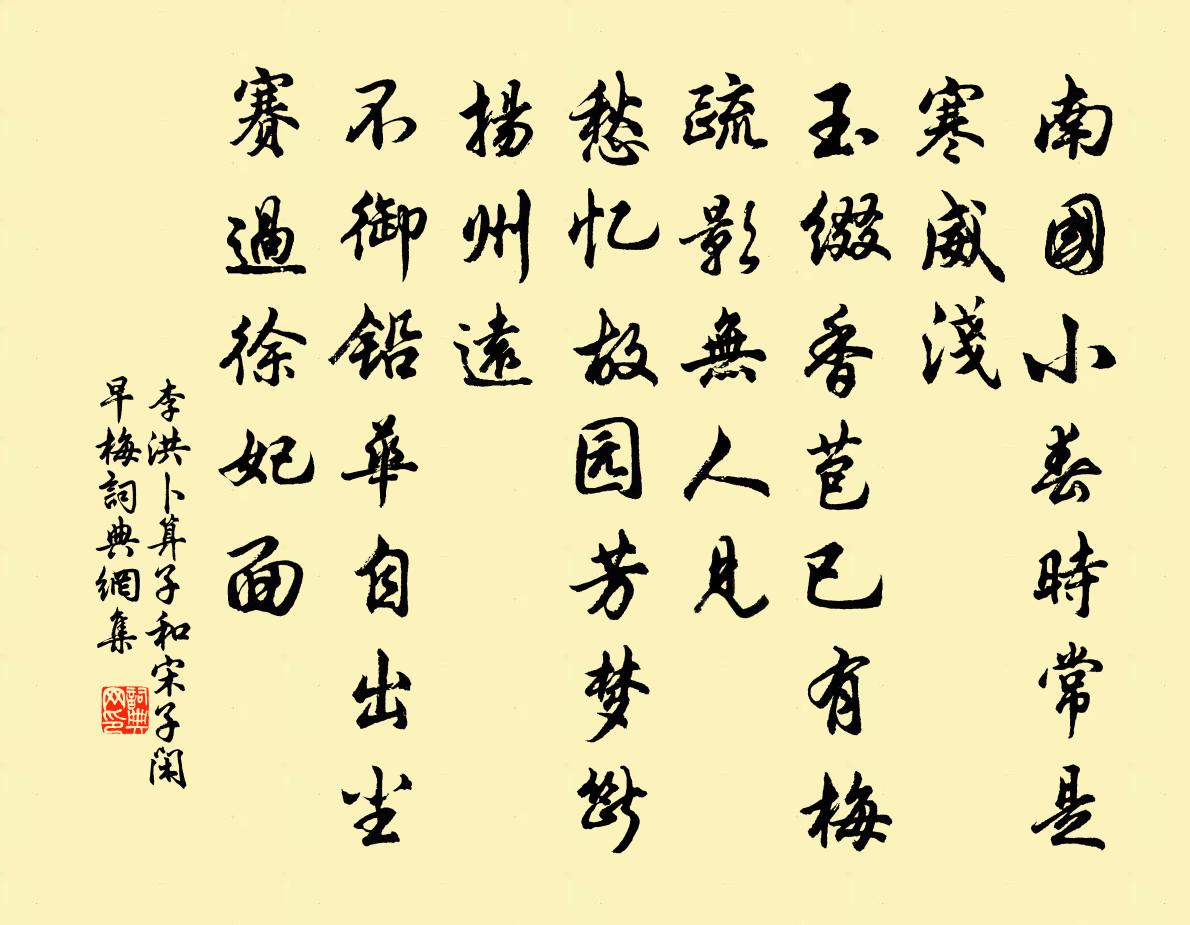 南國小春時常是
寒威淺
玉綴香苞已有梅
疏影無人見
愁忆故园芳梦斷
揚州遠
不御鉛華自出尘
賽過徐妃面
李洪卜算子和宋子閑
早梅詞典網集
詞典
网印